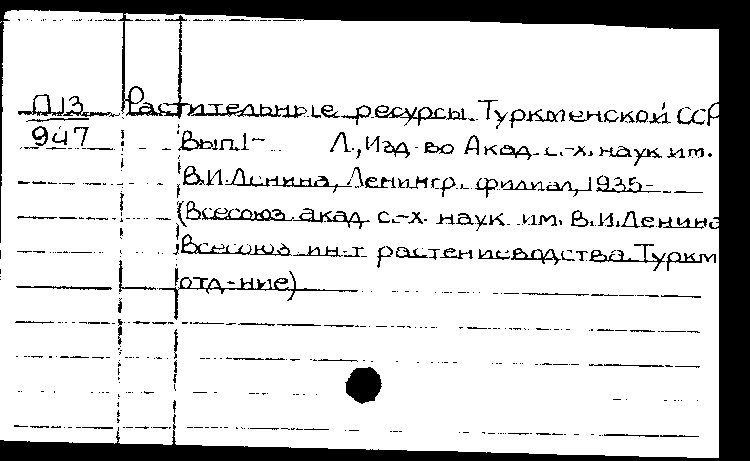 П13 Растительные ресурсы Туркменской ССР
947 Вып.1- Л., Изд-во Акад. с.-х. наук им.
В.И.Ленина, Ленингр. филиал, 1935-
(Всесоюз. акад. с.-х. наук им. В.И.Ленина
Всесоюз. ин-т растениеводства. Туркм
отд-ние)